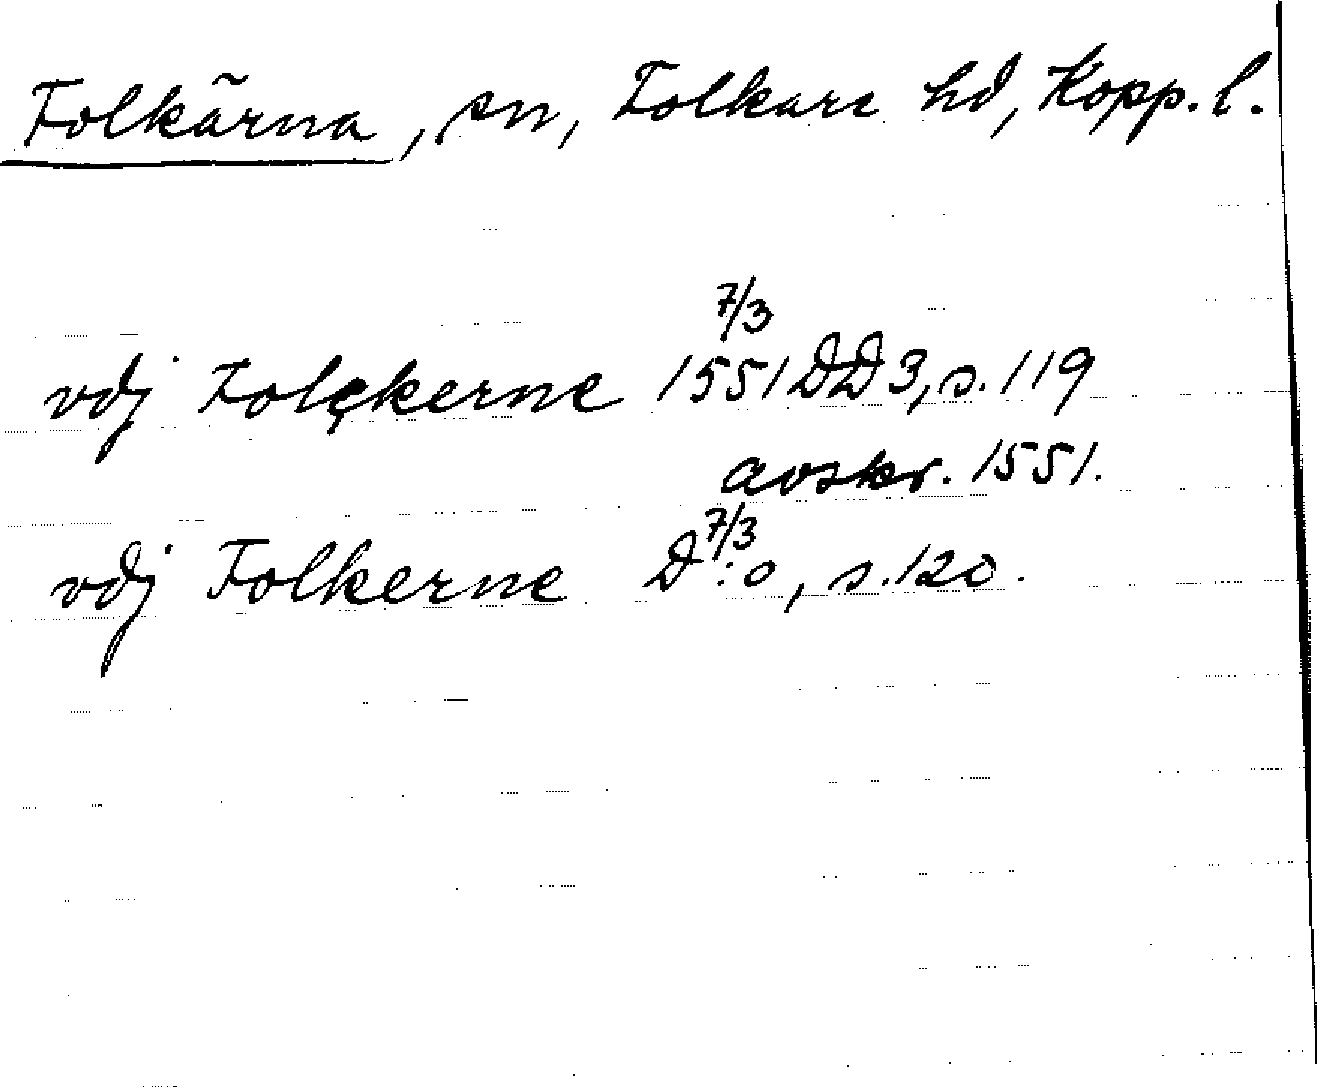 Folkärna, sn, Folkare hd, Kopp. l.
7/3
vdj Folckerne 1551 DD 3, s. 119
avskr. 1551.
7/3
vdj Folkerne D:o, s. 120.